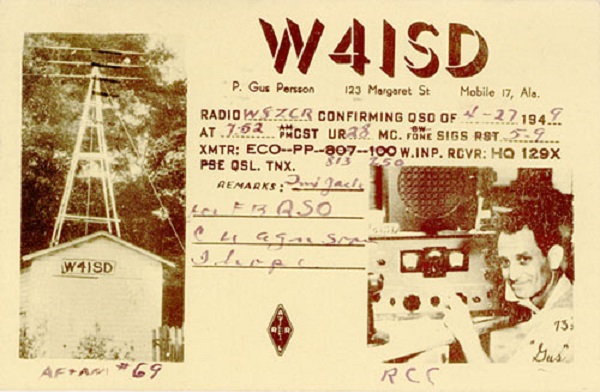 W4ISD
P. Gus Persson 123 Margaret St Mobile 17, Ala.
RADIO W9ZCR CONFIRMING QSO OF 4-27 1949
AT 7:02 AM PM CST UR 28 MC. CW FONE SIGS RST 5-9
XMTR: ECO--PP--807--100 W. INP. RCVR: HQ 129X
813 250
PSE QSL. TNX.
REMARKS: Jack
FB QSO
C U agn soon
I hope
W4ISD
ARRL
73s
"Gus"
AF+AM #69
RCC